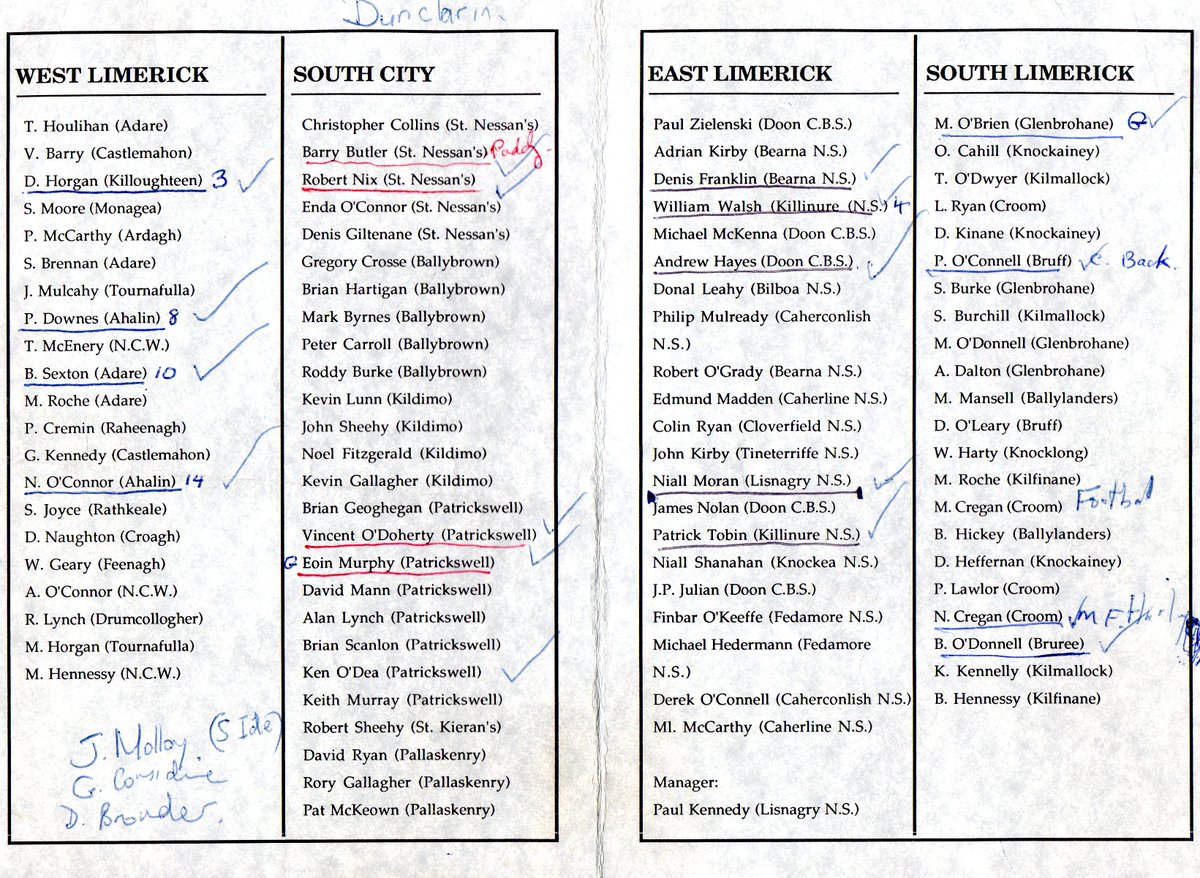 Dunclarin.
WEST LIMERICK
T. Houlihan (Adare)
V. Barry (Castlemahon)
D. Horgan (Killoughteen) 3
S. Moore (Monagea)
P. McCarthy (Ardagh)
S. Brennan (Adare)
J. Mulcahy (Tournafulla)
P. Downes (Ahalin) 8
T. McEnery (N.C.W.)
B. Sexton (Adare) 10
M. Roche (Adare)
P. Cremin (Raheenagh)
G. Kennedy (Castlemahon)
N. O'Connor (Ahalin) 14
S. Joyce (Rathkeale)
D. Naughton (Croagh)
W. Geary (Feenagh)
A. O'Connor (N.C.W.)
R. Lynch (Drumcollogher)
M. Horgan (Tournafulla)
M. Hennessy (N.C.W.)
J. Molloy (S Ide)
G. Considine
D. Brouder.
SOUTH CITY
Christopher Collins (St. Nessan's)
Barry Butler (St. Nessan's) Paddy
Robert Nix (St. Nessan's)
Enda O'Connor (St. Nessan's)
Denis Giltenane (St. Nessan's)
Gregory Crosse (Ballybrown)
Brian Hartigan (Ballybrown)
Mark Byrnes (Ballybrown)
Peter Carroll (Ballybrown)
Roddy Burke (Ballybrown)
Kevin Lunn (Kildimo)
John Sheehy (Kildimo)
Noel Fitzgerald (Kildimo)
Kevin Gallagher (Kildimo)
Brian Geoghegan (Patrickswell)
Vincent O'Doherty (Patrickswell)
G Eoin Murphy (Patrickswell)
David Mann (Patrickswell)
Alan Lynch (Patrickswell)
Brian Scanlon (Patrickswell)
Ken O'Dea (Patrickswell)
Keith Murray (Patrickswell)
Robert Sheehy (St. Kieran's)
David Ryan (Pallaskenry)
Rory Gallagher (Pallaskenry)
Pat McKeown (Pallaskenry)
EAST LIMERICK
Paul Zielenski (Doon C.B.S.)
Adrian Kirby (Bearna N.S.)
Denis Franklin (Bearna N.S.)
William Walsh (Killinure (N.S.) 4
Michael McKenna (Doon C.B.S.)
Andrew Hayes (Doon C.B.S.)
Donal Leahy (Bilboa N.S.)
Philip Mulready (Caherconlish
N.S.)
Robert O'Grady (Bearna N.S.)
Edmund Madden (Caherline N.S.)
Colin Ryan (Cloverfield N.S.)
John Kirby (Tineterriffe N.S.)
Niall Moran (Lisnagry N.S.)
James Nolan (Doon C.B.S.)
Patrick Tobin (Killinure N.S.)
Niall Shanahan (Knockea N.S.)
J.P. Julian (Doon C.B.S.)
Finbar O'Keeffe (Fedamore N.S.)
Michael Hedermann (Fedamore
N.S.)
Derek O'Connell (Caherconlish N.S.)
Ml. McCarthy (Caherline N.S.)
Manager:
Paul Kennedy (Lisnagry N.S.)
SOUTH LIMERICK
M. O'Brien (Glenbrohane) G
O. Cahill (Knockainey)
T. O'Dwyer (Kilmallock)
L. Ryan (Croom)
D. Kinane (Knockainey)
P. O'Connell (Bruff) C. Back.
S. Burke (Glenbrohane)
S. Burchill (Kilmallock)
M. O'Donnell (Glenbrohane)
A. Dalton (Glenbrohane)
M. Mansell (Ballylanders)
D. O'Leary (Bruff)
W. Harty (Knocklong)
M. Roche (Kilfinane)
M. Cregan (Croom) Football
B. Hickey (Ballylanders)
D. Heffernan (Knockainey)
P. Lawlor (Croom)
N. Cregan (Croom) M F.
B. O'Donnell (Bruree)
K. Kennelly (Kilmallock)
B. Hennessy (Kilfinane)